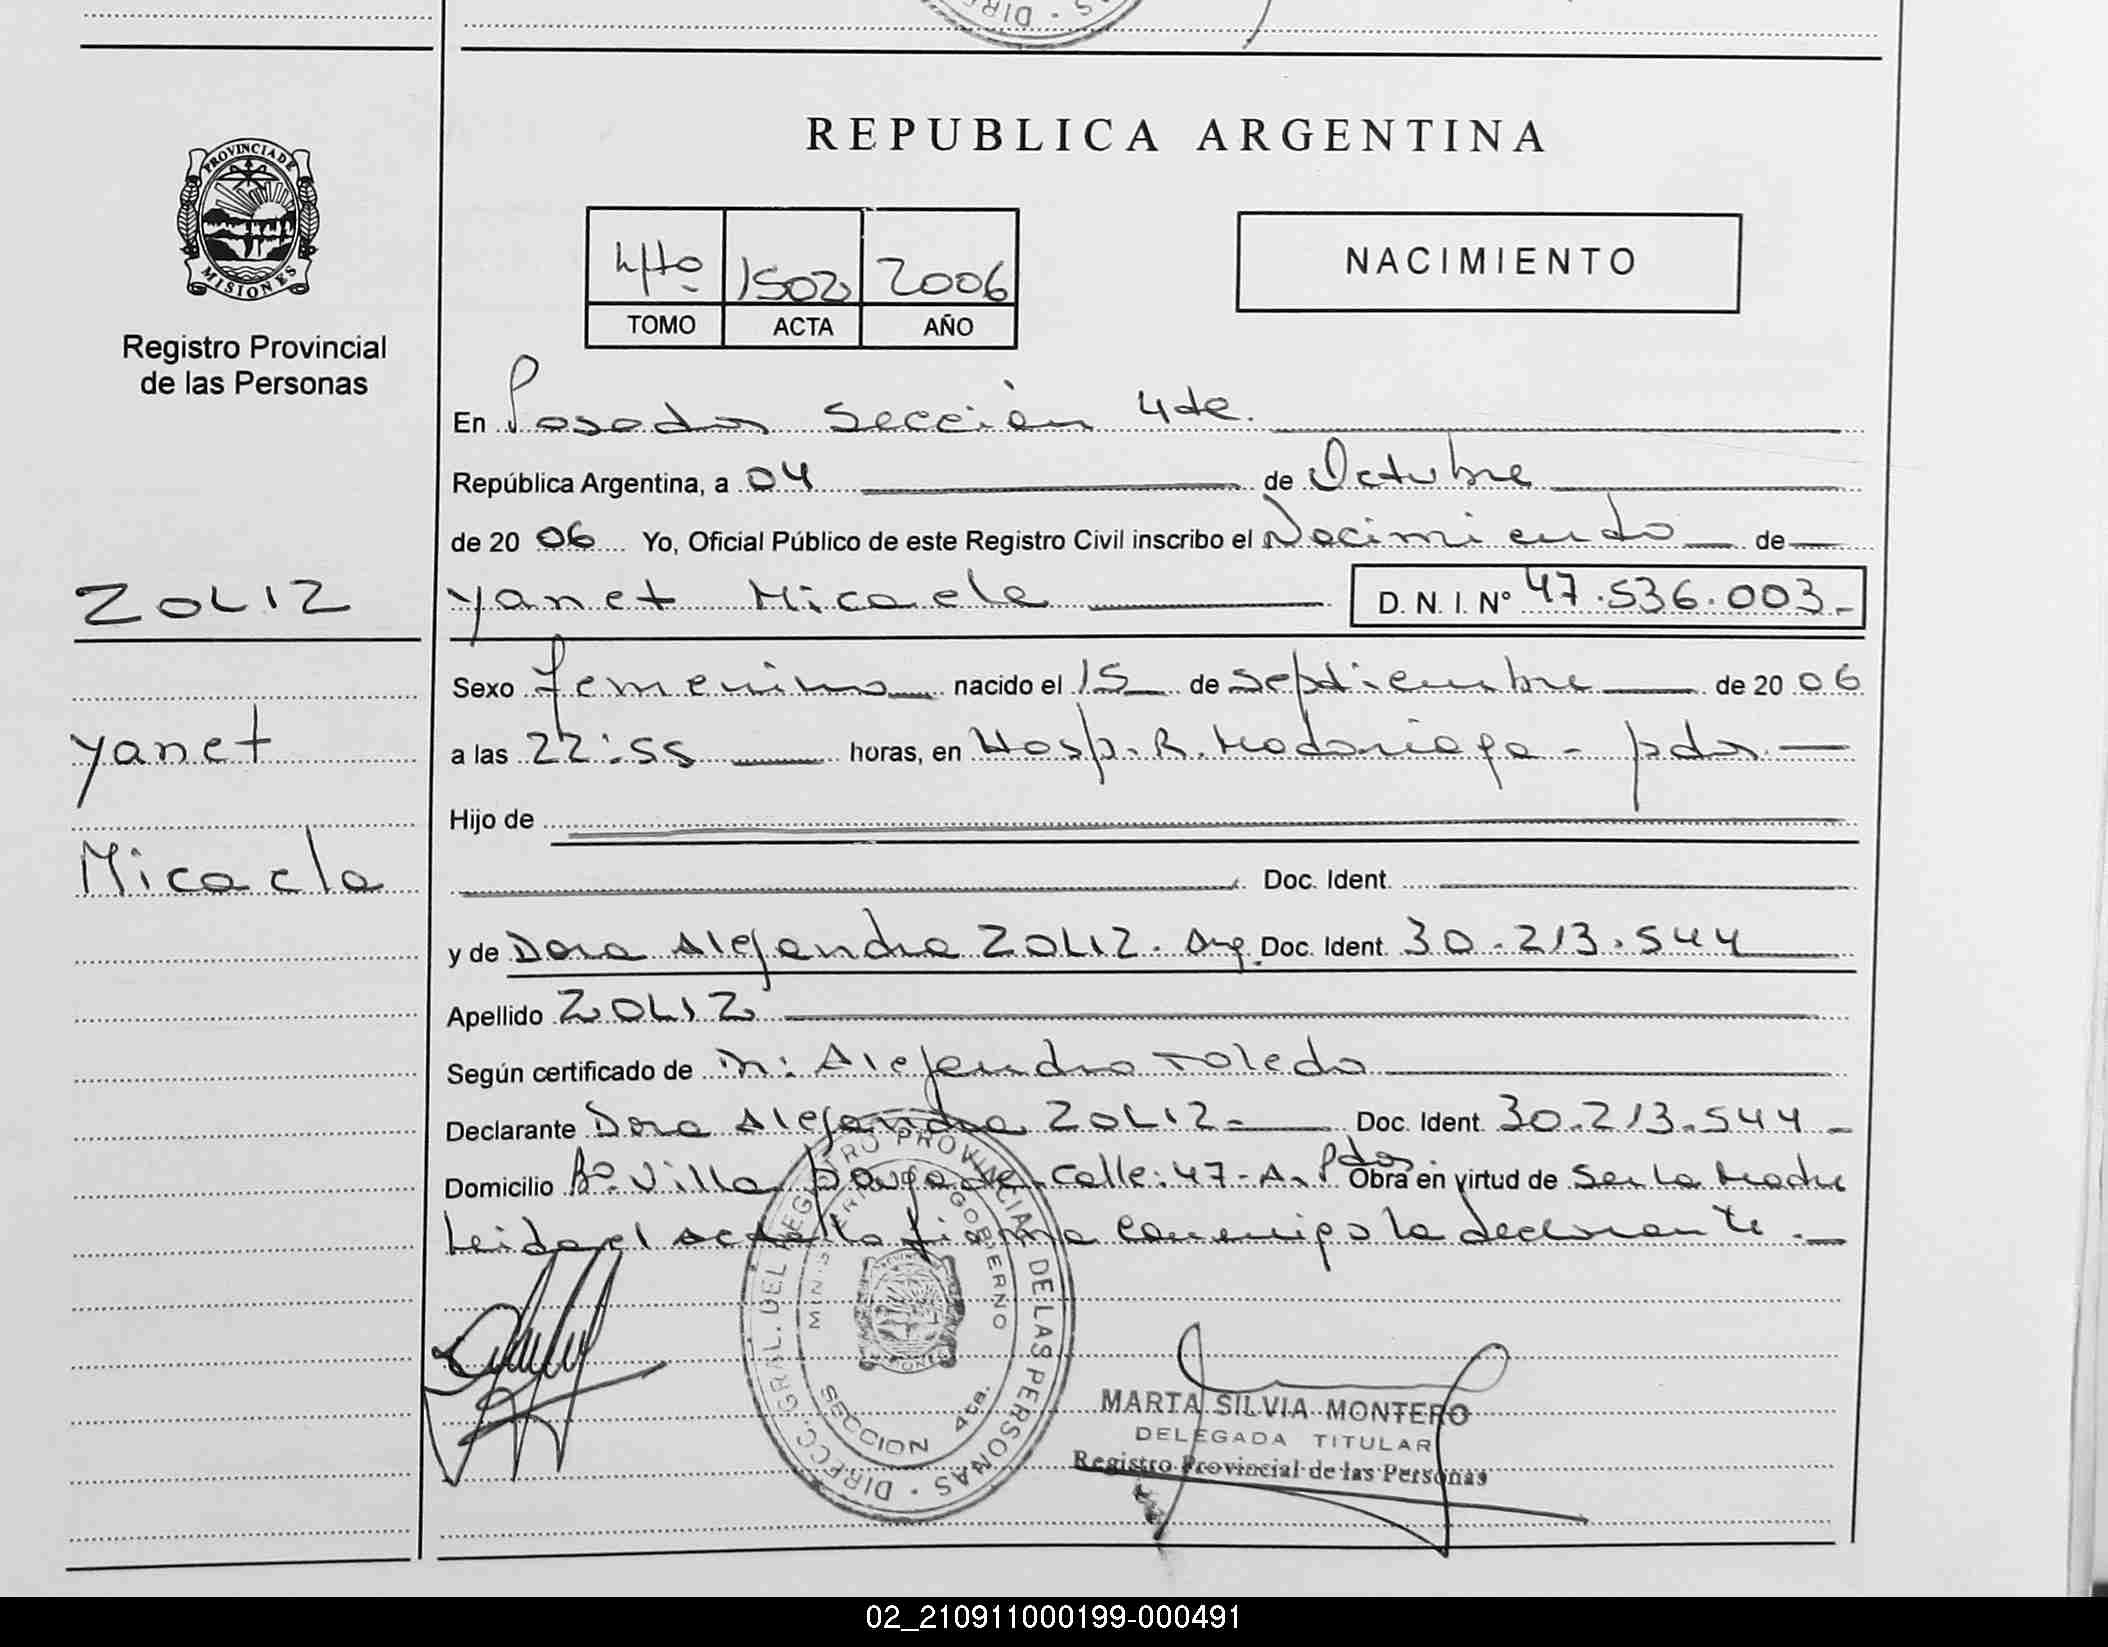 REPUBLICA ARGENTINA
PROVINCIA DE
MISIONES
Registro Provincial
de las Personas
4to 1502 2006
TOMO ACTA AÑO
NACIMIENTO
En Posadas Sección 4ta.
República Argentina, a 04 de Octubre
de 20 06 Yo, Oficial Público de este Registro Civil inscribo el Nacimiento de
Yanet Micaela D. N. I. Nº 47.536.003.-
ZOLIZ
Yanet
Micaela
Sexo femenino nacido el 15 de septiembre de 20 06
a las 22:55 horas, en Hosp. R. Madariaga - pdas.
Hijo de
Doc. Ident.
y de Dora Alejandra ZOLIZ. Arg. Doc. Ident. 30.213.544
Apellido ZOLIZ
Según certificado de m: Alejandro Toledo
Declarante Dora Alejandra ZOLIZ- Doc. Ident. 30.213.544 -
Domicilio Bº Villa Calle: 47-A- Pdas Obra en virtud de Ser La Madre
Leida el acta la firma conmigo la declarante.-
DIRECC. GRAL. DEL REGISTRO PROVINCIAL DE LAS PERSONAS
GOBIERNO
SECCION 4ta.
MARTA SILVIA MONTERO
DELEGADA TITULAR
Registro Provincial de las Personas
02_210911000199-000491